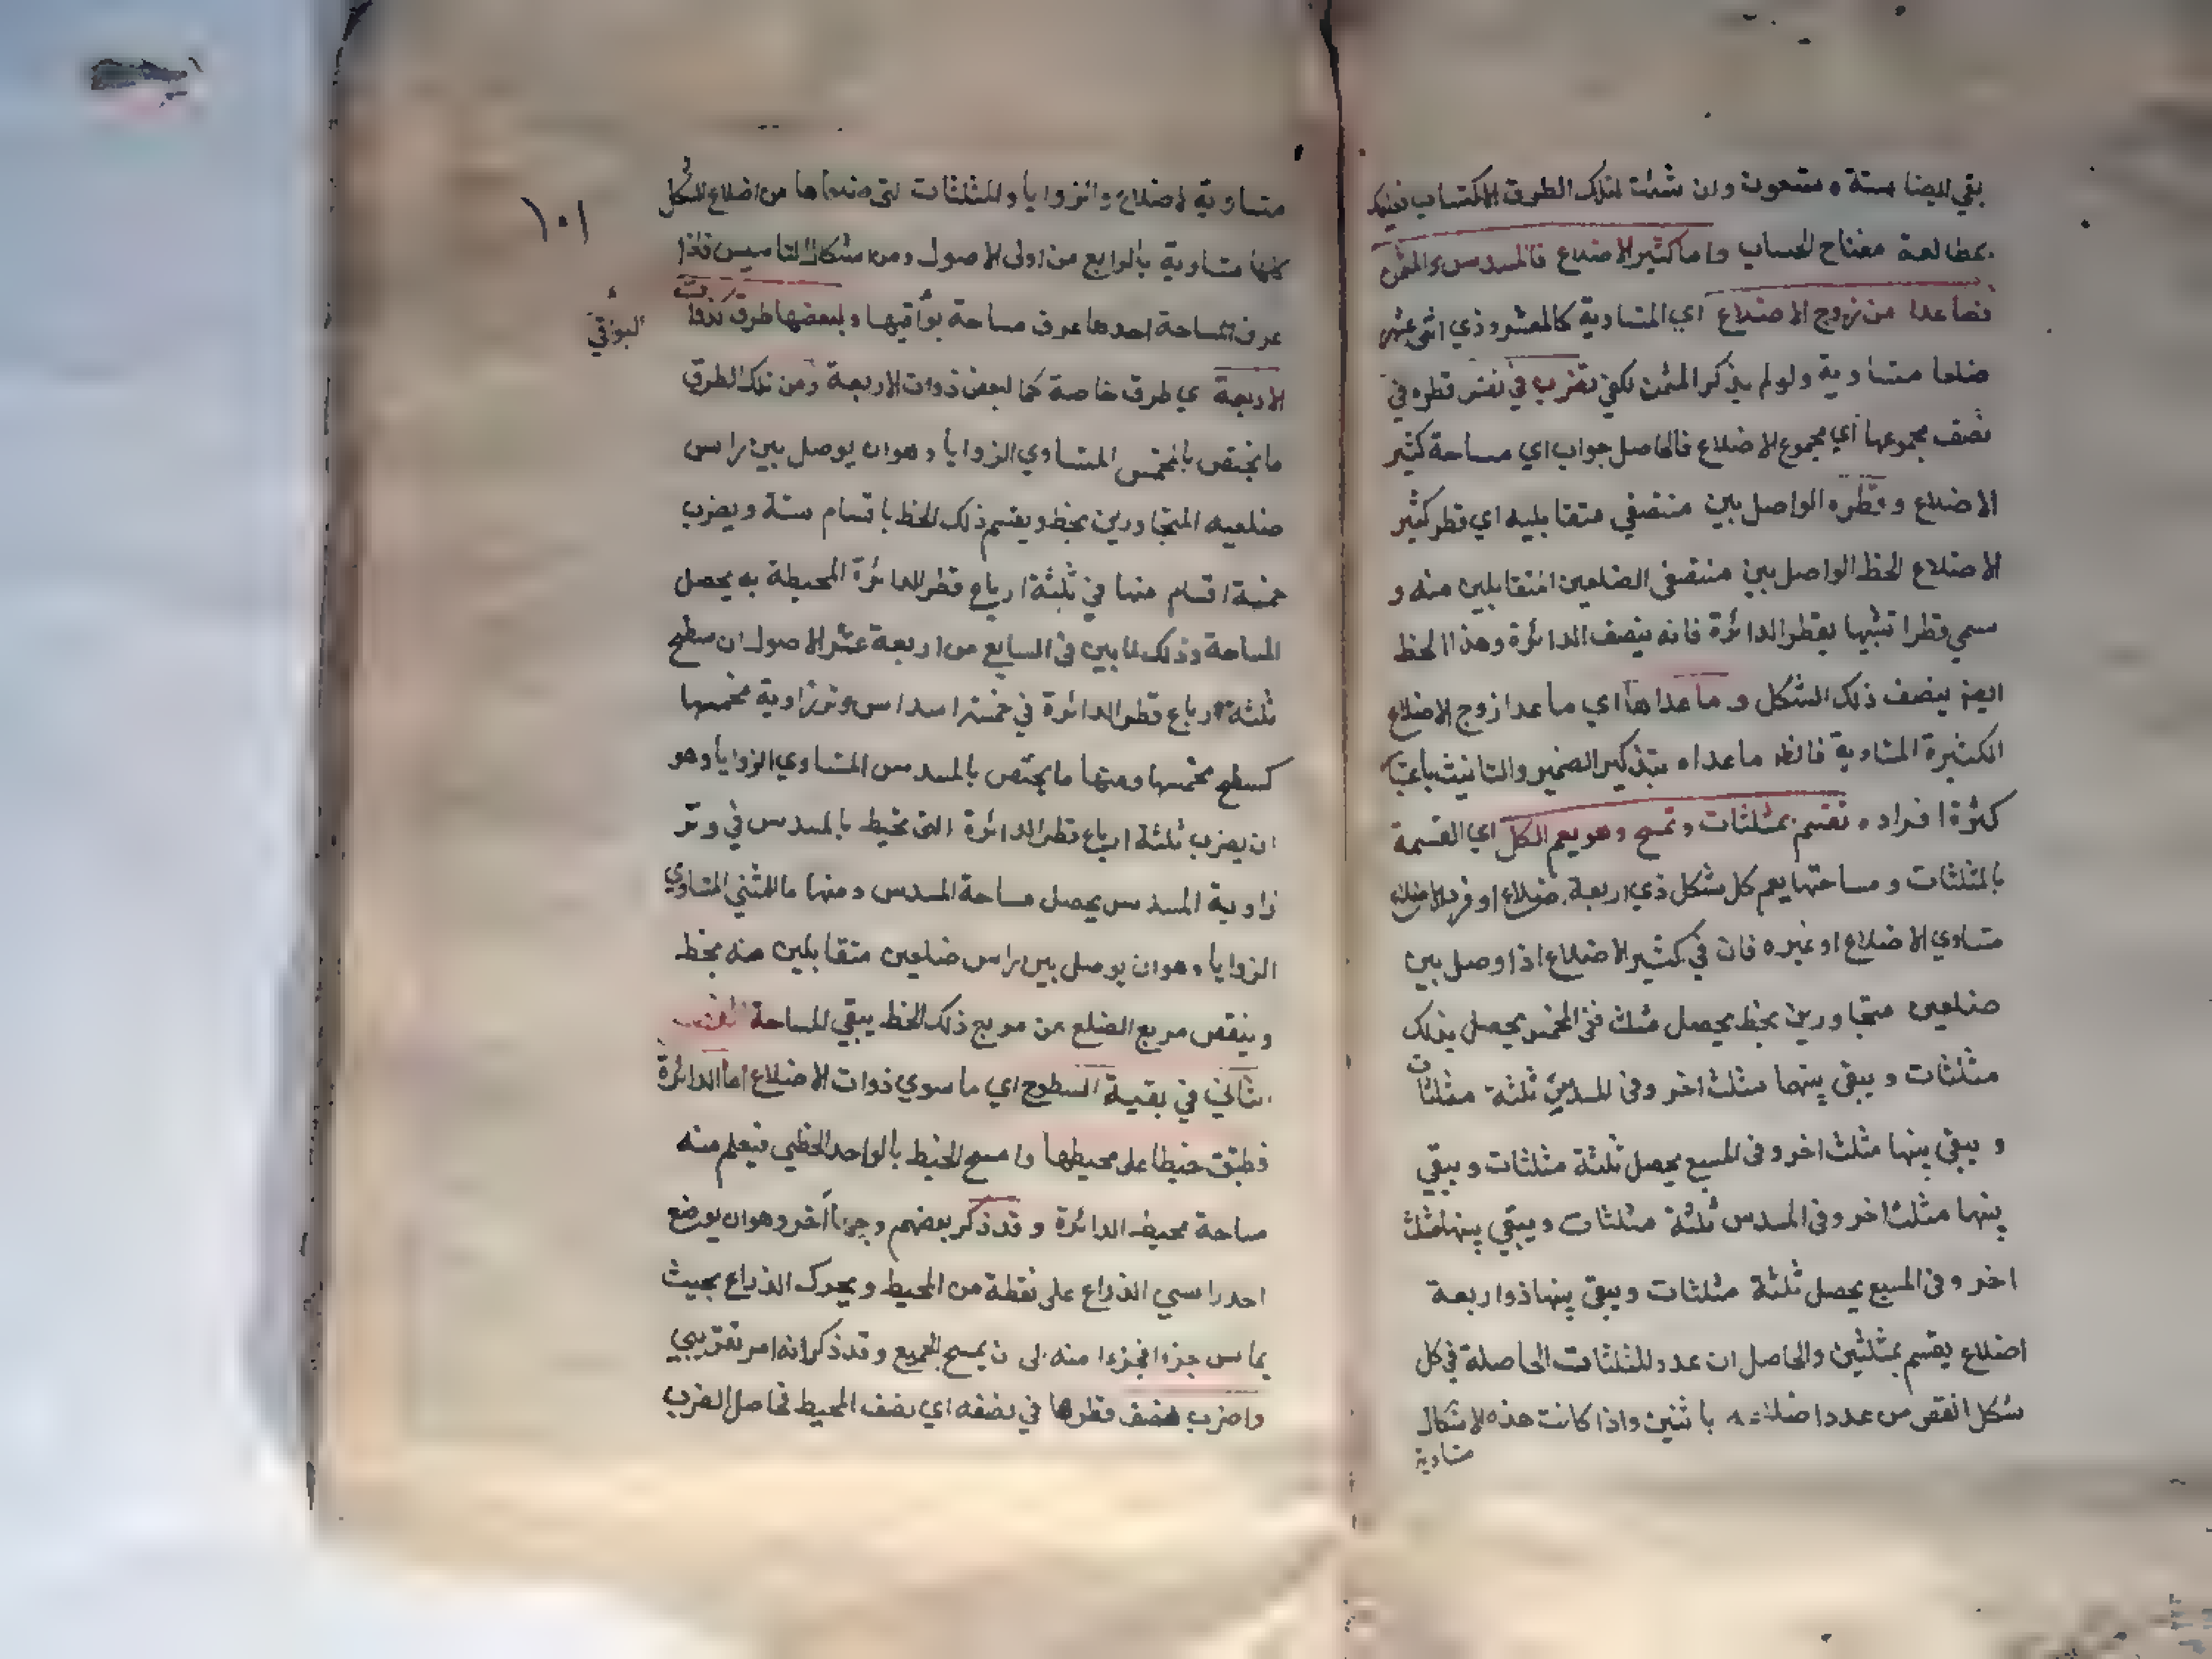 بقي ايضا ستة وتسعون وان شئت لتلك الطرق الاكتساب فعليك
بمطالعة مفتاح الحساب واما كثير الاضلاع فالمسدس والمثمن
فصاعدا من زوج الاضلاع اي المتساوية كالمعشر وذي اثنى عشر
ضلعا متساوية ولو لم يذكر المثمن لكفى تضرب في نصف قطره في
نصف مجموعها اي مجموع الاضلاع فالحاصل جواب اي مساحة كثير
الاضلاع وقطره الواصل بين منتصفي متقابليه اي قطر كثير
الاضلاع الخط الواصل بين منتصفي الضلعين المتقابلين منه و
سمي قطرا تشبيها بقطر الدائرة فانه ينصف الدائرة وهذا الخط
ايضا ينصف ذلك الشكل وما عداها اي ما عدا زوج الاضلاع
الكثيرة المتساوية فانظر ما عداه بتذكير الضمير والتانيث باعتبار
كثرة افراده تقسم بمثلثات وتمسح وهو يعم الكل اي القسمة
بالمثلثات ومساحتها يعم كل شكل ذي اربعة اضلاع او فرد الاضلاع
متساوي الاضلاع او غيره فان في كثير الاضلاع اذا وصل بين
ضلعين متجاورين بخط يحصل مثلث ففي المخمس يحصل بذلك
مثلثات ويبقى بينهما مثلث اخر وفى المسدس ثلثة مثلثات
و يبقى بينها مثلث اخر وفى المسبع يحصل ثلثة مثلثات ويبقي
بينها مثلث اخر وفى المسدس ثلثة مثلثات ويبقي بينها مثلث
اخر وفى المسبع يحصل ثلثة مثلثات ويبقى بينها ذو اربعة
اضلاع يقسم بمثلثين والحاصل ان عدد المثلثات الحاصلة في كل
شكل انقص من عدد اضلاعه باثنين واذا كانت هذه الاشكال
متساوية
متساوية الاضلاع والزوايا والمثلثات التى ضلعاها من اضلاع الشكل
كلها متساوية بالرابع من اولى الاصول ومن اشكال التاسيس فاذا
عرف مساحة احدها عرف مساحة بواقيها ولبعضها طرق كذوات
البواقي
١٠١
الاربعة اي طرق خاصة كما لبعض ذوات الاربعة ومن تلك الطرق
ما يختص بالمخمس المتساوي الزوايا وهو ان يوصل بين راس
ضلعيه المتجاورين بخط ويقسم ذلك الخط باقسام ستة ويضرب
خمسة اقسام منها في ثلثة ارباع قطر الدائرة المحيطة به يحصل
المساحة وذلك لما بين في السابع من اربعة عشر الاصول ان سطح
ثلثة ارباع قطر الدائرة في خمسة اسداس وتر زاوية مخمسها
كسطح مخمسها ومنها ما يختص بالمسدس المتساوي الزوايا وهو
ان يضرب ثلثة ارباع قطر الدائرة التى تحيط بالمسدس في وتر
زاوية المسدس يحصل مساحة المسدس ومنها ما للمثمن المتساوي
الزوايا وهو ان يوصل بين راس ضلعين متقابلين منه بخط
وينقص مربع الضلع من مربع ذلك الخط يبقي المساحة الفصل
الثاني في بقية السطوح اي ما سوي ذوات الاضلاع اما الدائرة
فطبق خيطا على محيطها وامسح الخيط بالواحد الخطي فيعلم منه
مساحة محيط الدائرة وقد ذكر بعضهم وجها آخر وهو ان يوضع
احد راسي الذراع على نقطة من المحيط ويحرك الذراع بحيث
يماس جزءا فجزءا منه الى ان يمسح الجميع وقد ذكر انه امر تقريبي
واضرب نصف قطرها في نصفه اي نصف المحيط فحاصل الضرب